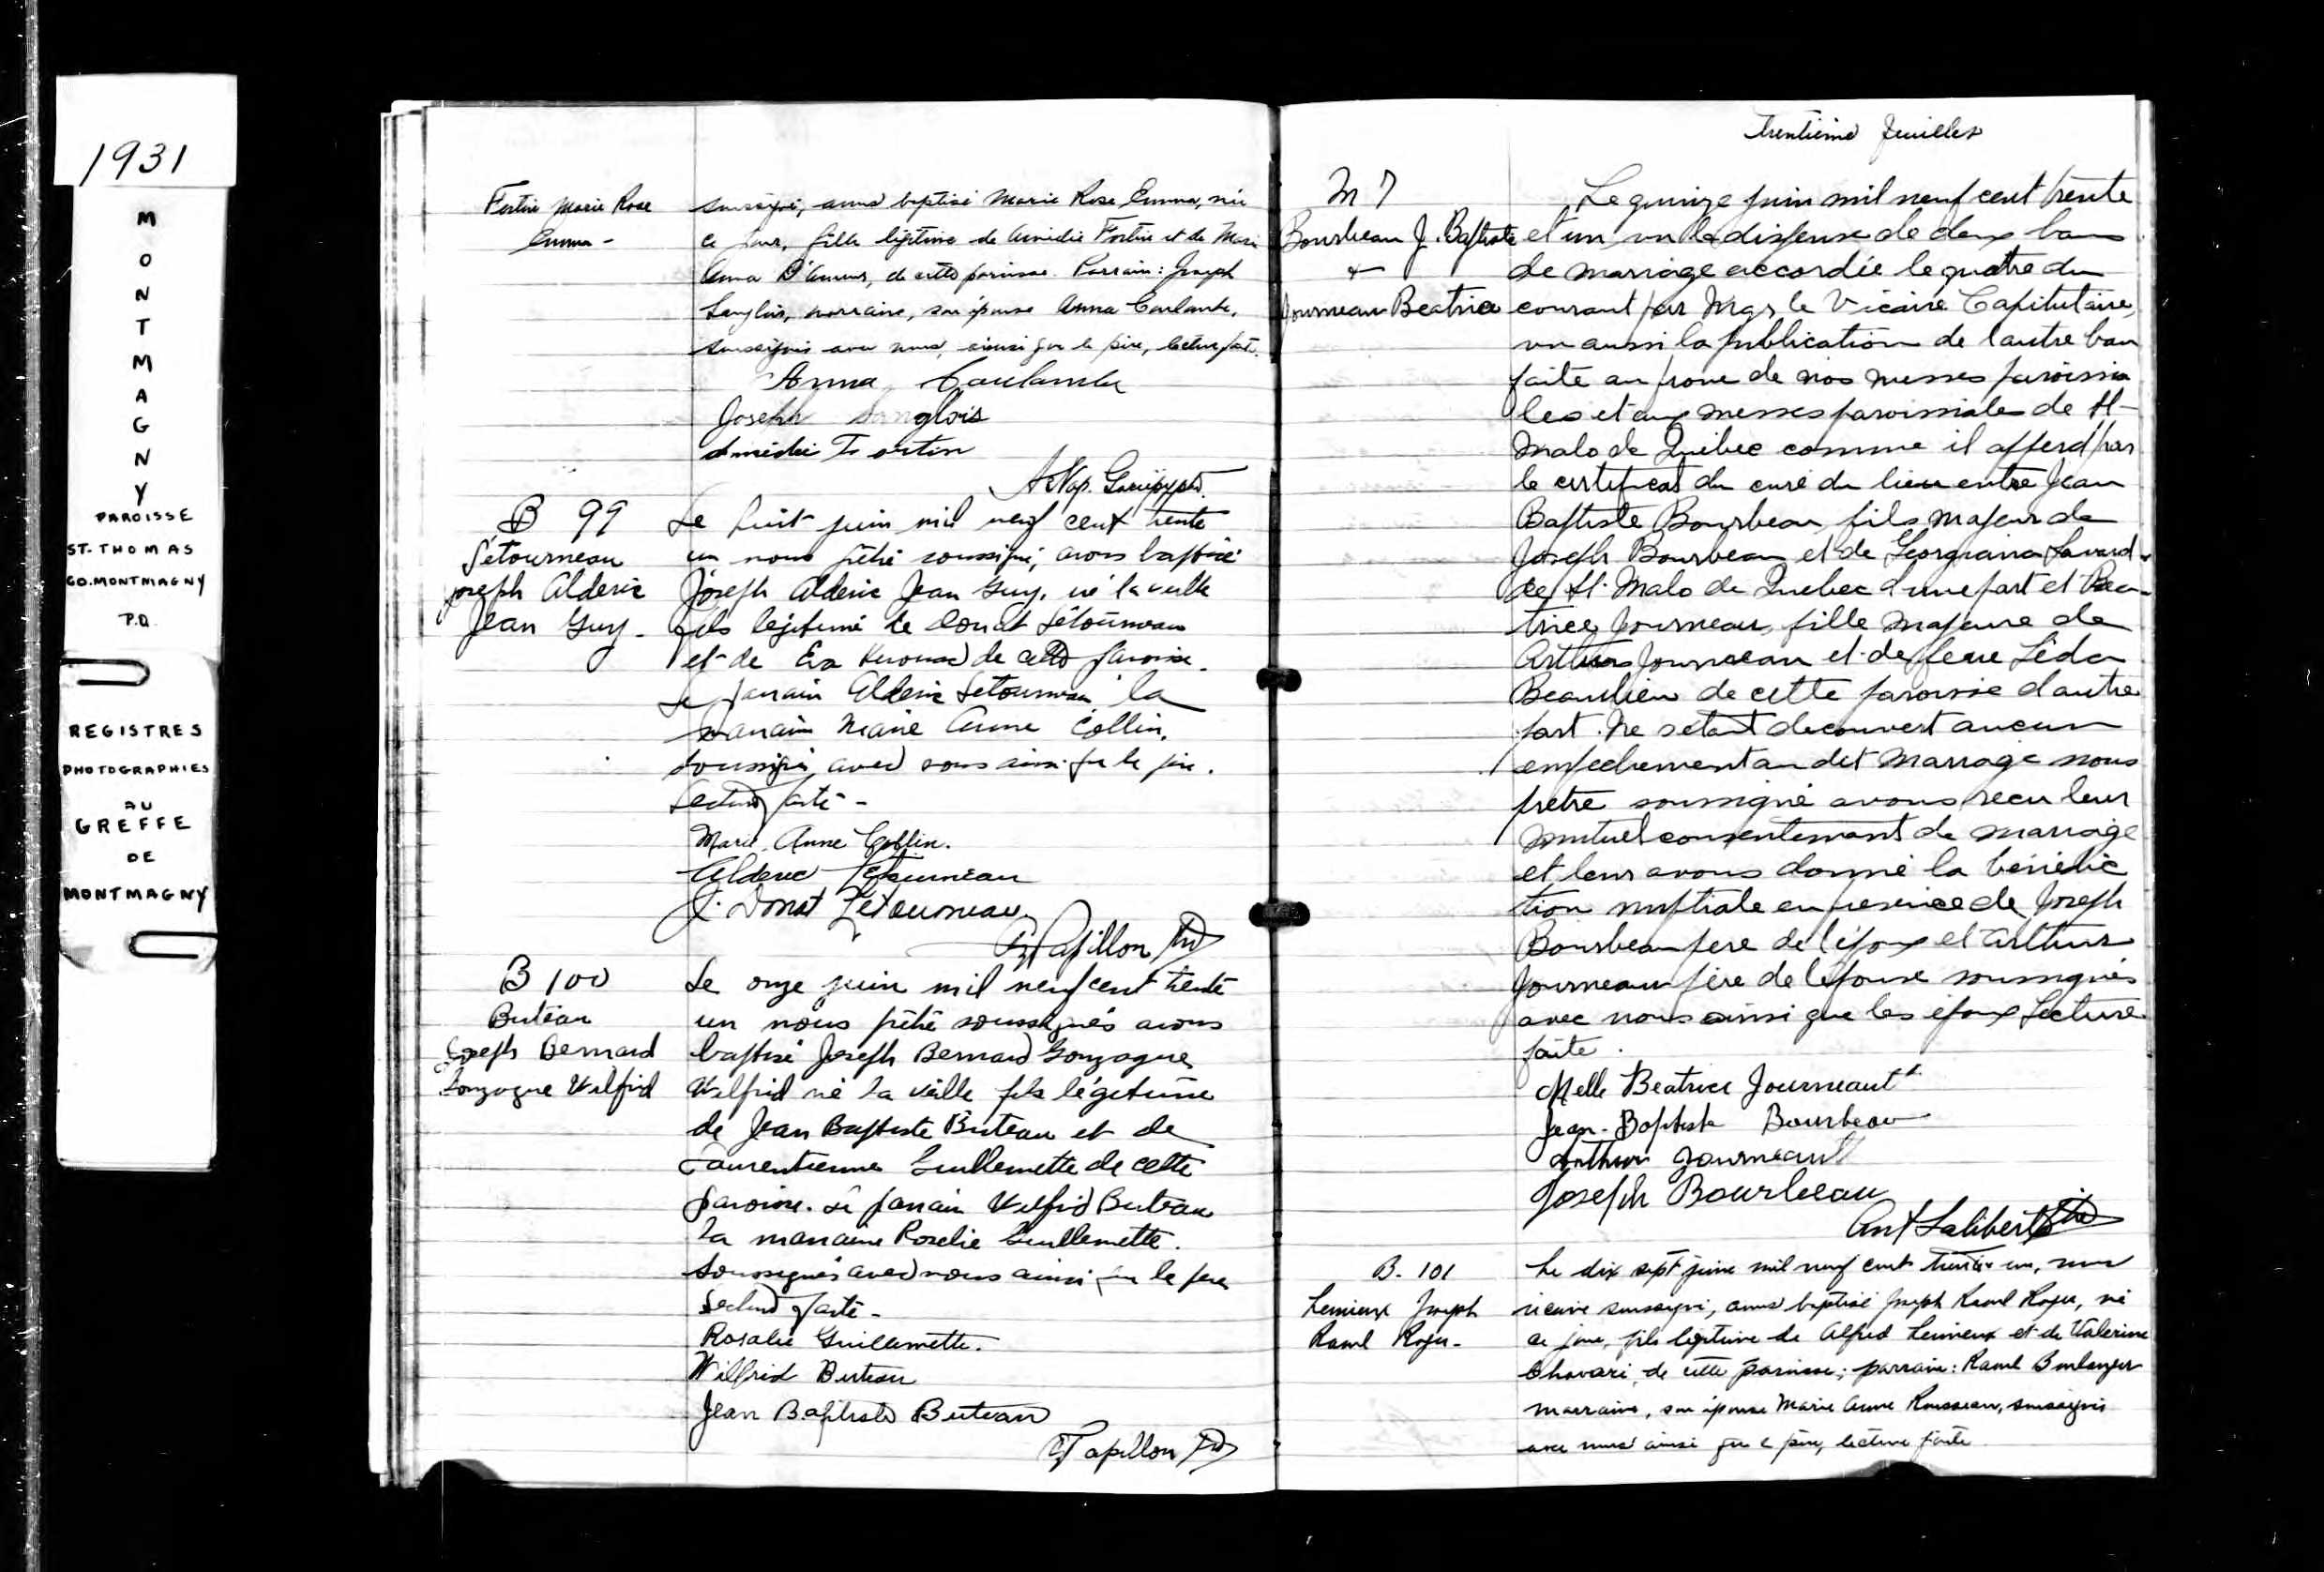 1931
MONTMAGNY
PAROISSE
ST-THOMAS
CO. MONTMAGNY
P.Q.
REGISTRES
PHOTOGRAPHIES
AU
GREFFE
DE
MONTMAGNY
Fortin Marie Rose
Emma -
soussigné, avons baptisé Marie Rose Emma, née
ce jour, fille légitime de Amédée Fortin et de Marie
Anna D'Amours, de cette paroisse. Parrain: Joseph
Langlois, marraine, son épouse Anna Coulombe,
soussignés avec nous, ainsi que le père, lecture faite.
Anna Coulombe
Joseph Langlois
Amédée Fortin
B 99
Létourneau
Joseph Alderic
Jean Guy -
Le huit juin mil neuf cent trente
un nous prêtre soussigné, avons baptisé
Joseph Alderic Jean Guy, né la veille
fils légitime de Donat Létourneau
et de Eva de cette paroisse.
Le parrain Alderic Létourneau la
marraine Marie Anne Collin,
soussignés avec nous ainsi que le père.
Lecture faite -
Marie Anne Collin.
Alderic Létourneau
J. Donat Létourneau
Papillon ptre
B 100
Buteau
Joseph Bernard
Gonzague Wilfrid
Le onze juin mil neuf cent trente
un nous prêtre soussignés avons
baptisé Joseph Bernard Gonzague
Wilfrid né la veille fils légitime
de Jean Baptiste Buteau et de
Laurentienne Guillemette de cette
paroisse. Le parrain Wilfrid Buteau
la marraine Rosalie Guillemette.
Soussignés avec nous ainsi que le père
Lecture faite -
Rosalie Guillemette.
Wilfrid Buteau
Jean Baptiste Buteau
Papillon ptre
Trentième feuillet
M 7
Bourbeau J. Baptiste
&
Journeau Beatrice
Le quinze juin mil neuf cent trente
et un vu la dispense de deux bans
de mariage accordée le quatre du
courant par Mgr le Vicaire Capitulaire,
vu aussi la publication de l'autre ban
faite au prone de nos messes paroissia
les et aux messes paroissiales de St-
Malo de Québec comme il append par
le certificat du curé du lieu entre Jean
Baptiste Bourbeau, fils majeur de
Joseph Bourbeau et de Georgiana Savard
de St. Malo de Quebec d'une part et Bea-
trice Journeau, fille majeure de
Arthur Journeau et de feue Léda
Beaulieu de cette paroisse d'autre
part. Ne s'étant decouvert aucun
empechement au dit mariage nous
prêtre soussigné avons recu leur
mutuel consentement de mariage
et leur avons donné la bénédic
tion nuptiale en presence de Joseph
Bourbeau père de l'époux et Arthur
Journeau père de l'épouse soussignés
avec nous ainsi que les époux Lecture
faite.
Melle Beatrice Journeault
Jean-Baptiste Bourbeau
Arthur Journeault
Joseph Bourbeau
Ant Laliberté ptre
B. 101
Lemieux Joseph
Raoul Roger -
Le dix sept juin mil neuf cent trente un, nous
vicaire soussigné, avons baptisé Joseph Raoul Roger, né
ce jour, fils légitime de Alfred Lemieux et de Valerine
de cette paroisse; parrain: Raoul Boulanger
marraine, son épouse Marie Anne Rousseau, soussignés
avec nous ainsi que le père, lecture faite